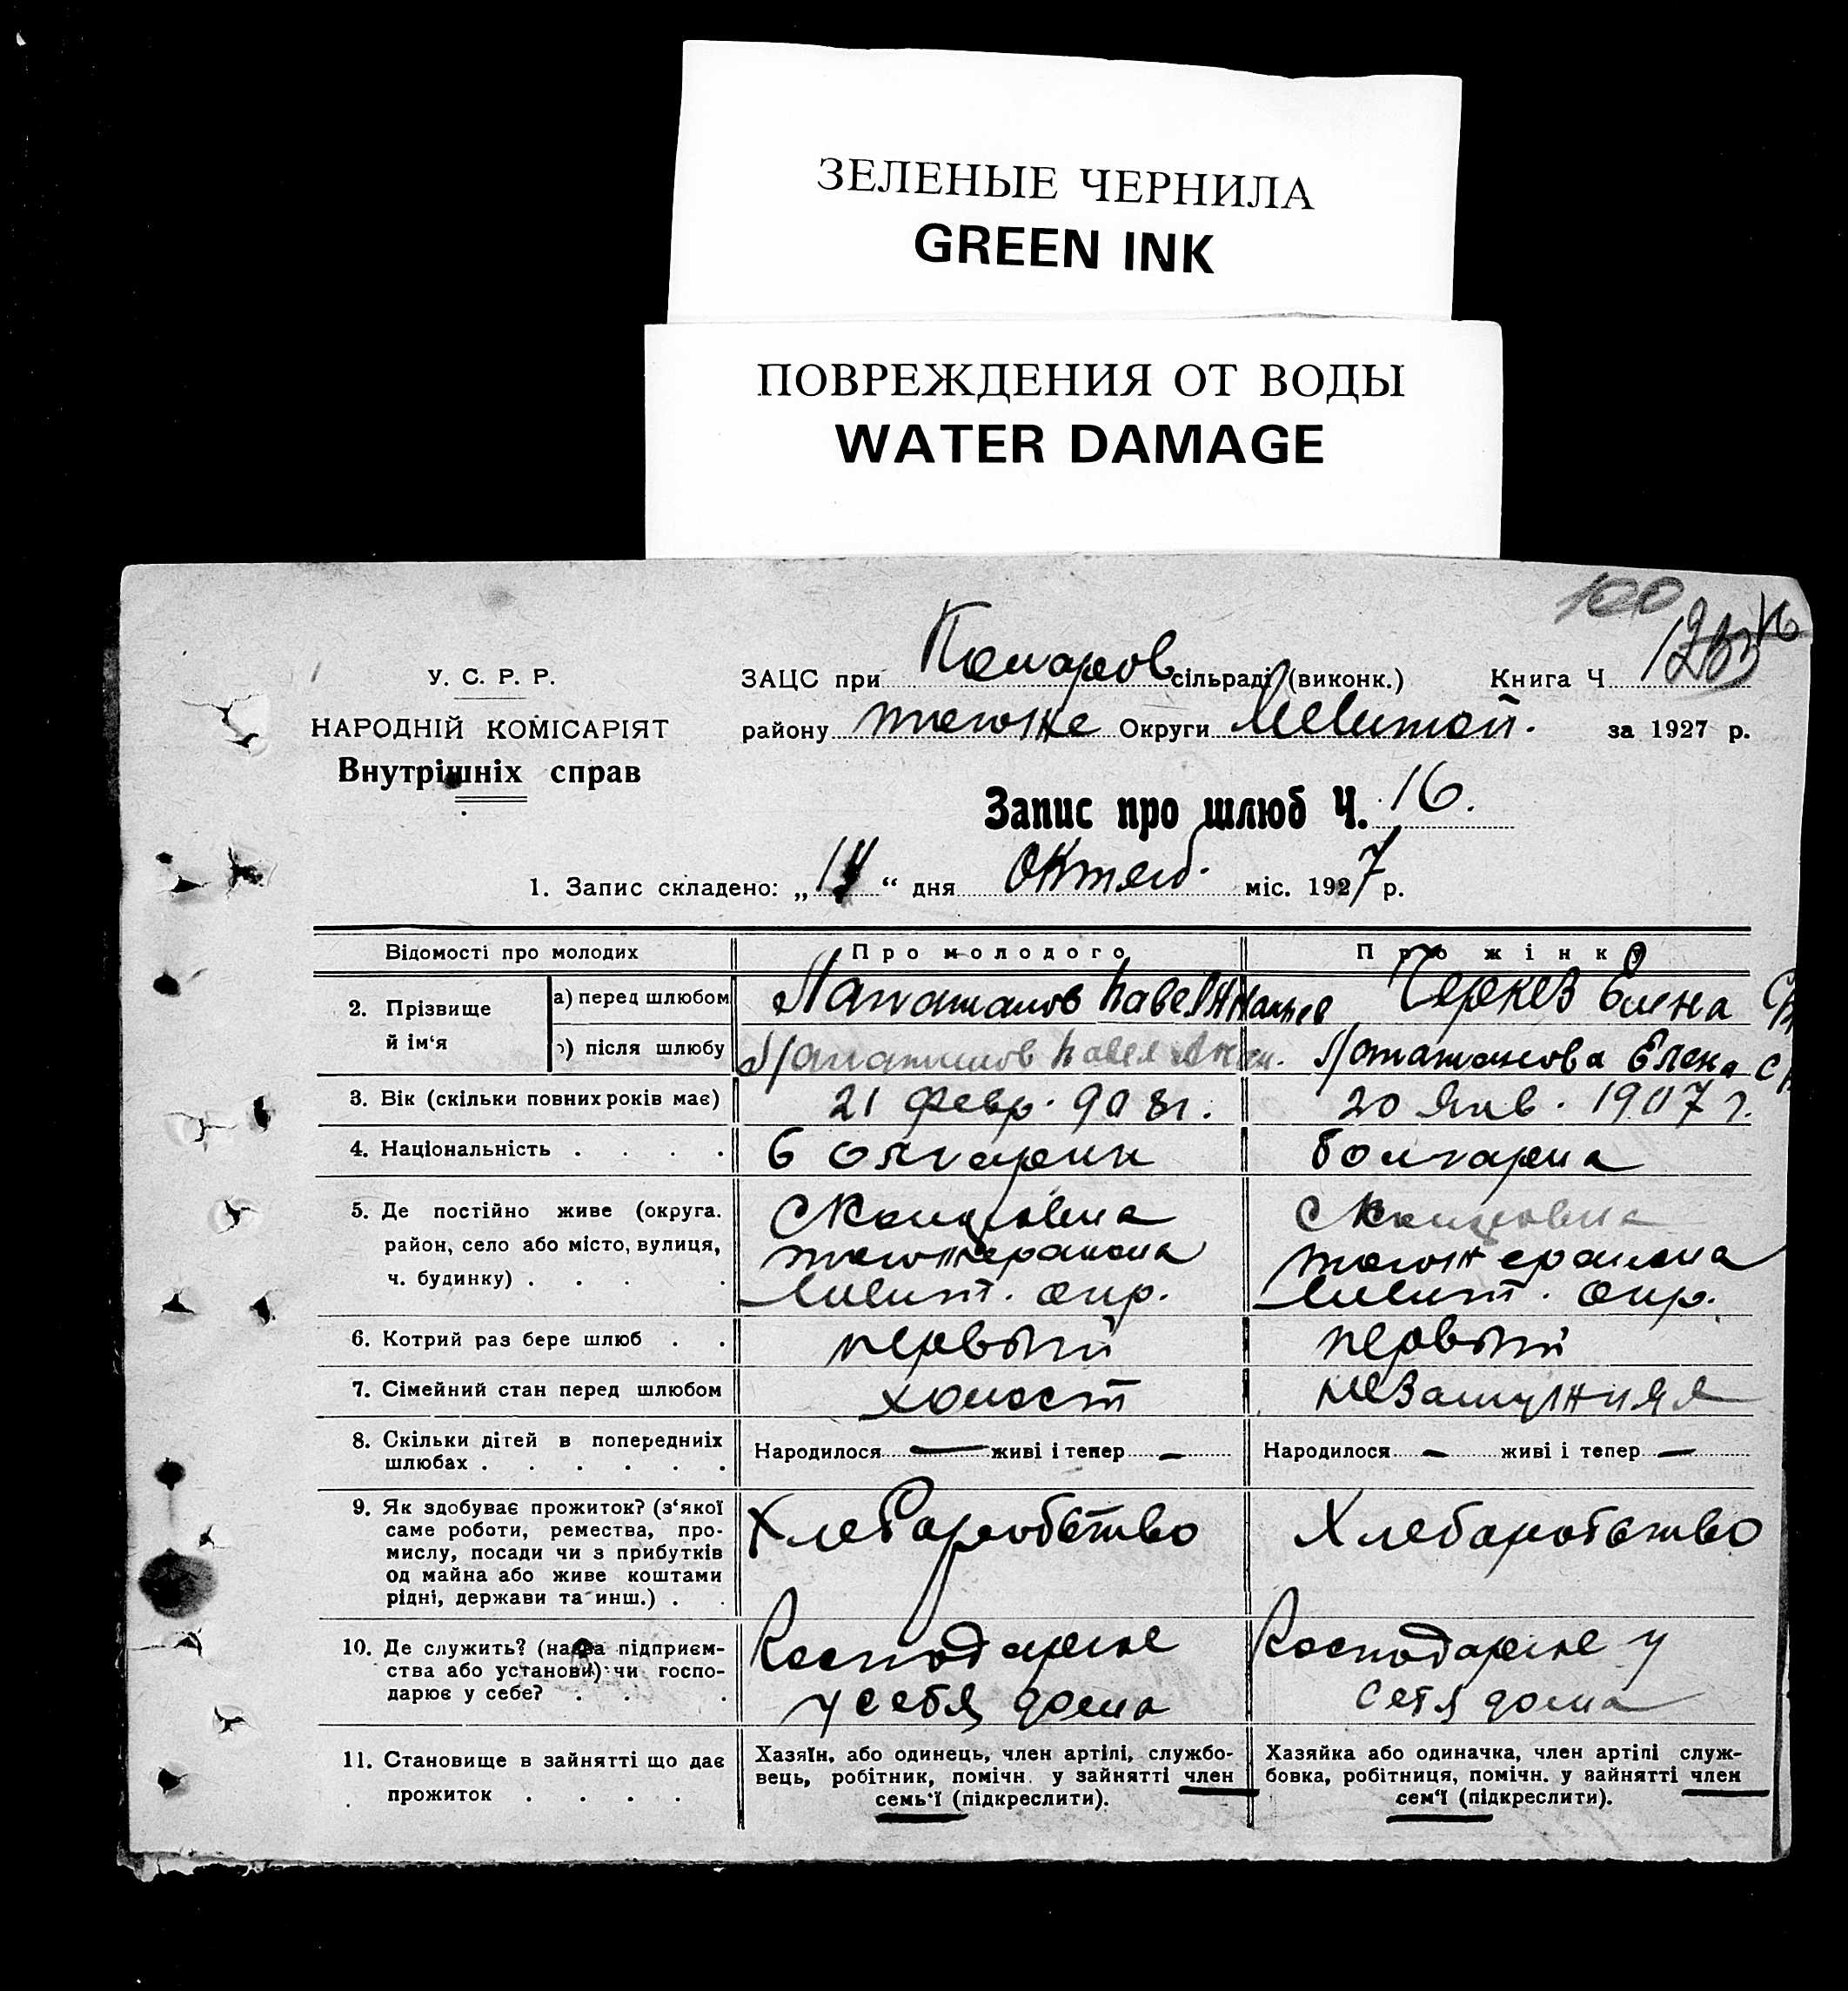 ЗЕЛЕНЫЕ ЧЕРНИЛА
GREEN INK
ПОВРЕЖДЕНИЯ ОТ ВОДЫ
WATER DAMAGE
100
У. С. Р. Р.
НАРОДНІЙ КОМІСАРІЯТ
Внутрішніх справ
ЗАЦС при Комаров сільраді (виконк.) Книга Ч
району Округи Мелитоп. за 1927 р.
Запис про шлюб Ч. 16.
1. Запис складено: „14“ дня Октяб. міс. 1927 р.
Відомості про молодих Про молодого Про жінку
2. Прізвище й ім‘я
а) перед шлюбом Павел Черкез Елена
б) після шлюбу Павел Елена
3. Вік (скільки повних років має) 21 февр. 908г. 20 Янв. 1907 г.
4. Національність . . . . болгарин болгарка
5. Де постійно живе (округа. район, село або місто, вулиця, ч. будинку) . . .
Мелит. окр. Мелит. окр.
6. Котрий раз бере шлюб . . первый первый
7. Сімейний стан перед шлюбом холост незамужняя
8. Скільки дітей в попередніх шлюбах . . . . . . Народилося — живі і тепер — Народилося — живі і тепер —
9. Як здобуває прожиток? (з‘якої саме роботи, ремества, промислу, посади чи з прибутків од майна або живе коштами рідні, держави та инш.) . . Хлебаробство Хлебаробство
10. Де служить? (назва підприємства або установи) чи господарює у себе? . . .
у себя дома у себя дома
11. Становище в зайнятті що дає прожиток . . . .
Хазяїн, або одинець, член артілі, службовець, робітник, помічн. у зайнятті член семь‘ї (підкреслити).
Хазяйка або одиначка, член артілі службовка, робітниця, помічн. у зайнятті член сем‘ї (підкреслити).